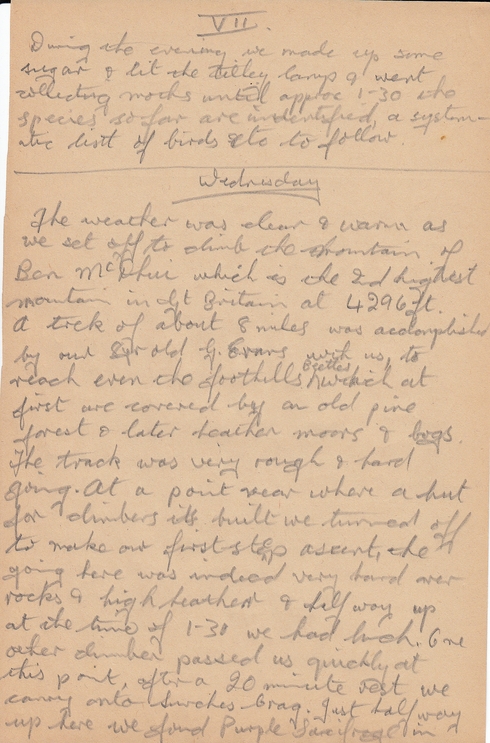 VII.
During the evening we made up some
sugar & lit the tilley lamp & went
collecting moths until approx 1-30 the
species so far are unidentified, a system-
atic list of birds etc to follow.
Wednesday
The weather was clear & warm as
we set off to climb the mountain of
Ben McDhui which is the 2nd highest
mountain in Gt Britain at 4296ft.
A trek of about 8 miles was accomplished
by our 8yr old G. Evans with us, to
reach even the foothills, which at
first are covered by an old pine
forest & later heather moors & bogs.
The track was very rough & hard
going. At a point near where a hut
for climbers its built we turned off
to make our first step ascent, the
going here was indeed very hard over
rocks & high heather & half way up
at the time of 1-30 we had lunch. One
other climber passed us quickly at
this point, after a 20 minute rest we
carry onto Crag. Just half way
up here we found Purple Saxifrage in